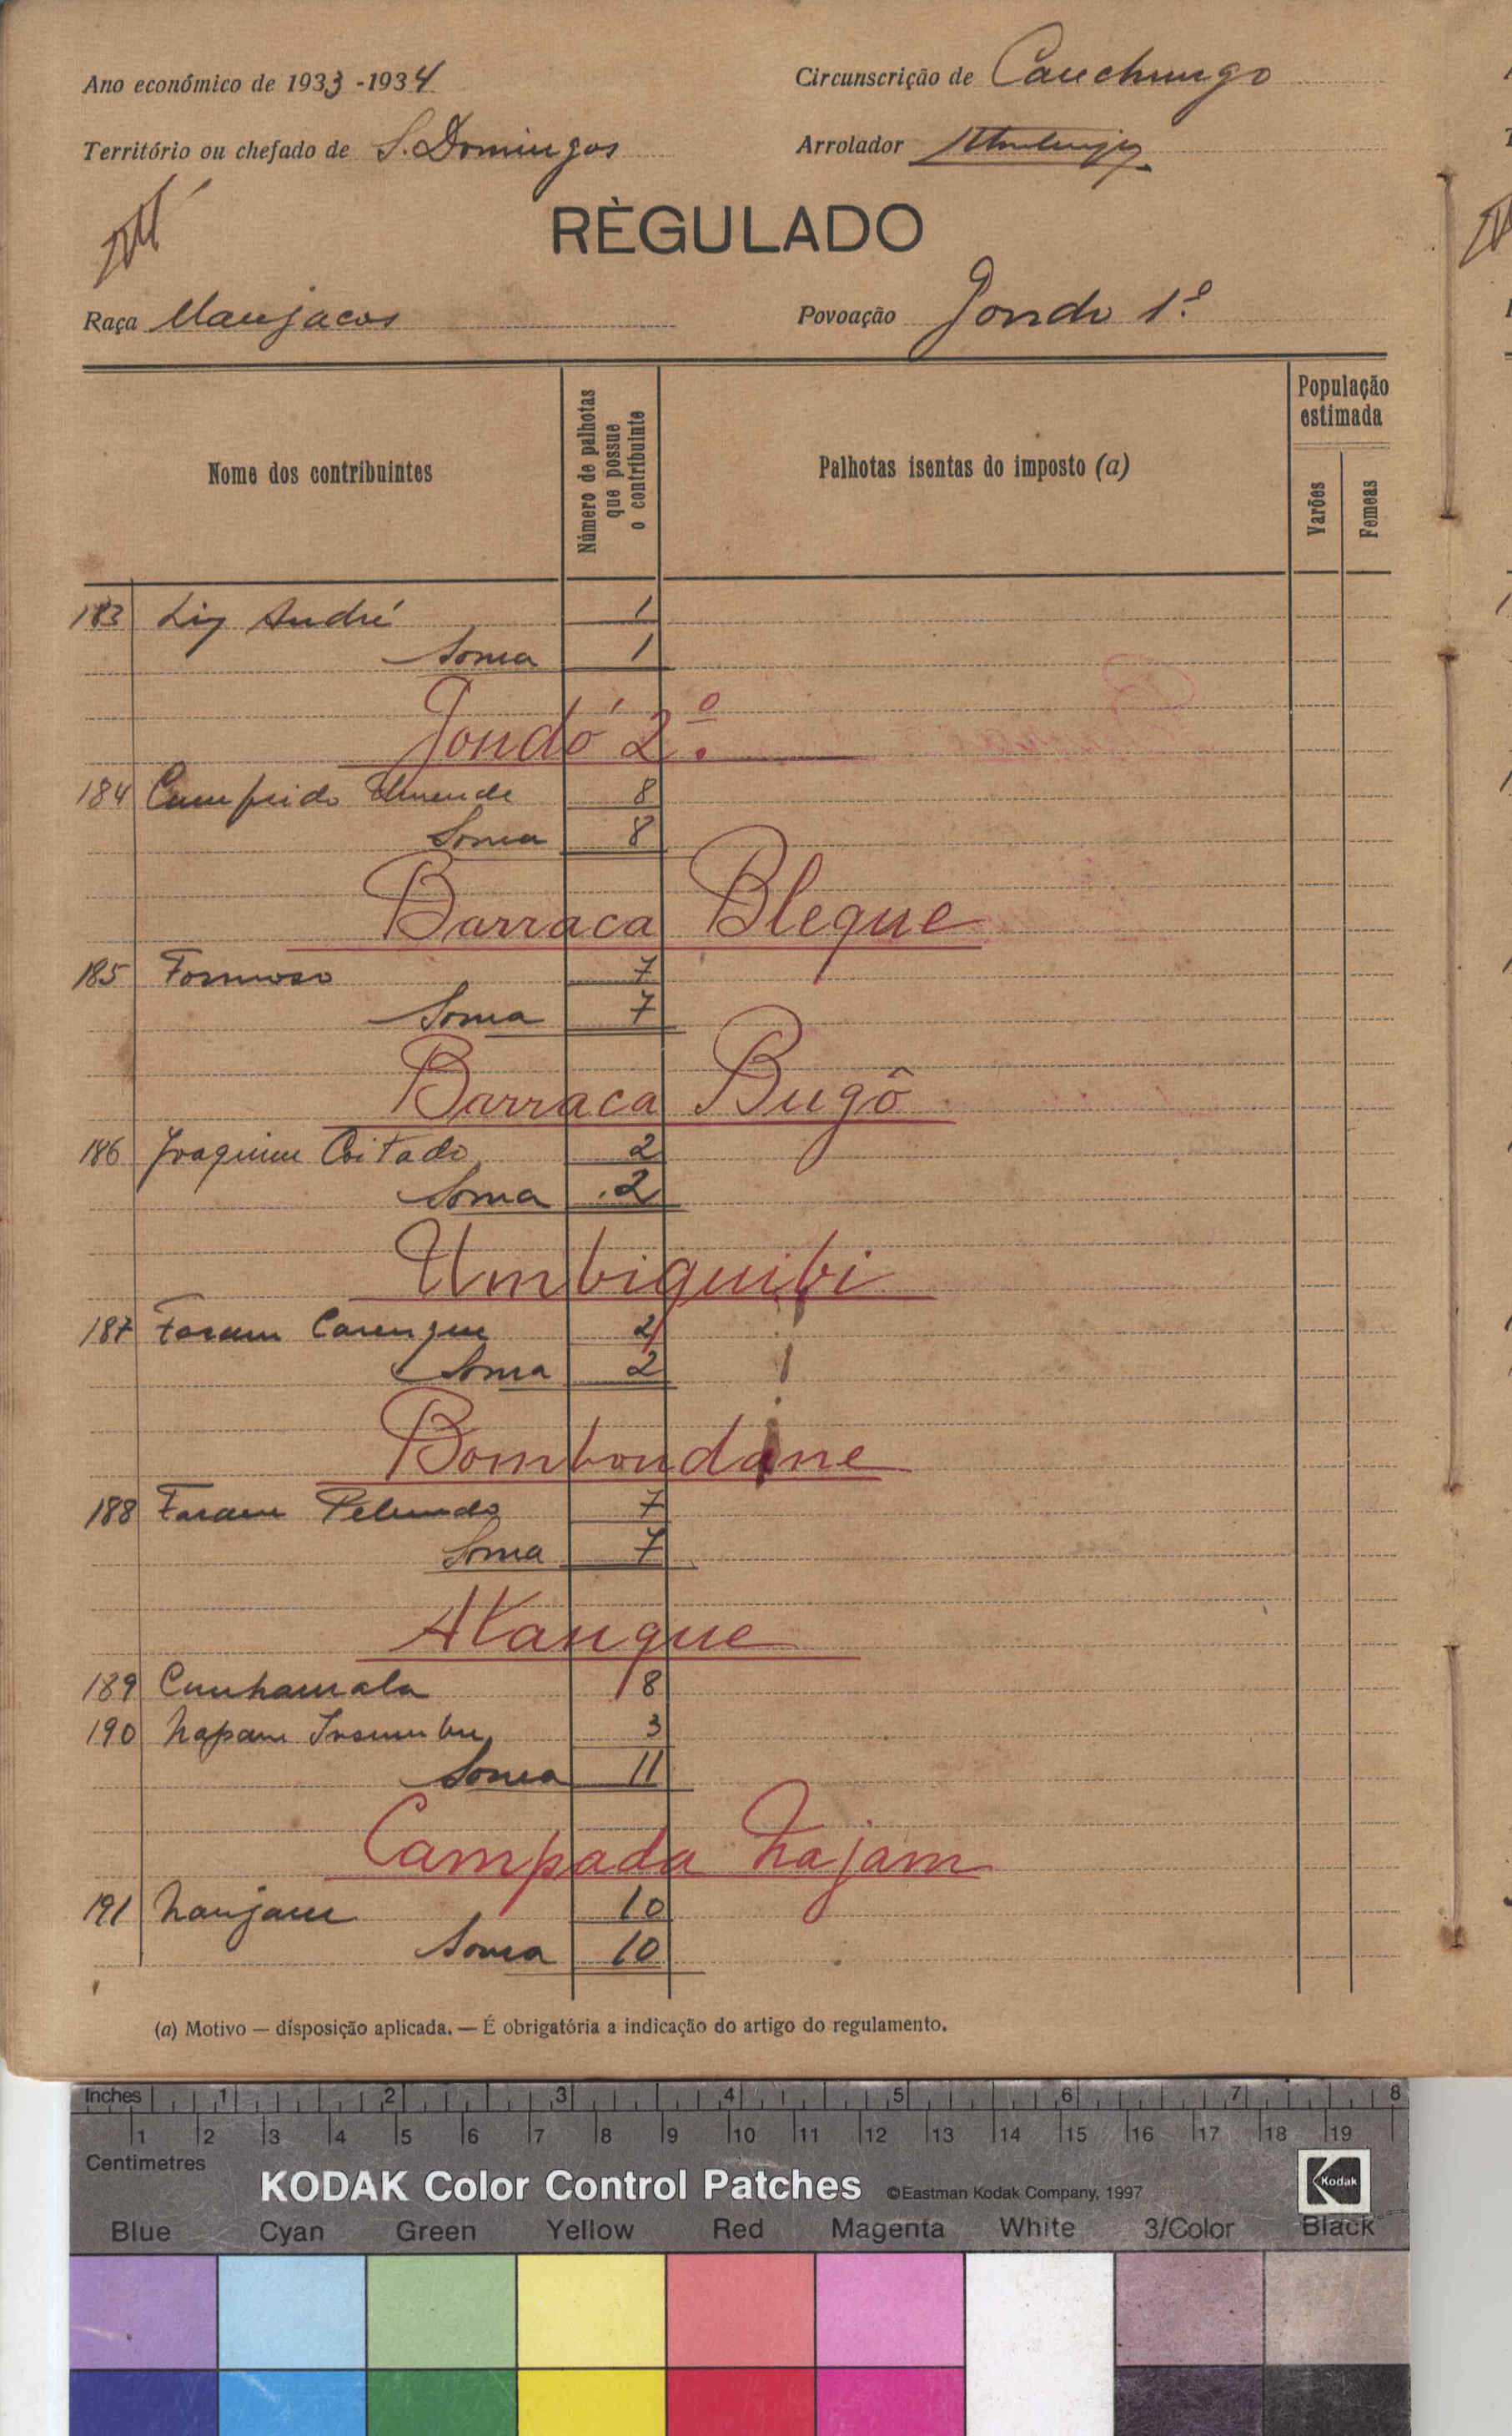 Ano económico de 1933-1934
Circunscrição de Cauchungo
Território ou chefado de S. Domingos
Arrolador
RÈGULADO
Raça Manjacos
Povoação Jondo 1º
Nome dos contribuintes
Número de palhotas que possue o contribuinte
Palhotas isentas do imposto (a)
População estimada
Varões
Femeas
183 Liz André 1
Soma 1
Jondó 2º.
184 8
Soma 8
Barraca Bleque
185 Formoso 7
Soma 7
Barraca Bugô
186 Joaquim Coitado 2
Soma 2
Umbiquibi
187 2
Soma 2
Bombondane
188 7
Soma 7
Atangue
189 Cunhamala 8
190 3
Soma 11
Campada Najam
191 Naujam 10
Soma 10
(a) Motivo — disposição aplicada. — É obrigatória a indicação do artigo do regulamento.
Inches 1 2 3 4 5 6 7 8
1 2 3 4 5 6 7 8 9 10 11 12 13 14 15 16 17 18 19
Centimetres
KODAK Color Control Patches ©Eastman Kodak Company, 1997 Kodak
Blue Cyan Green Yellow Red Magenta White 3/Color Black